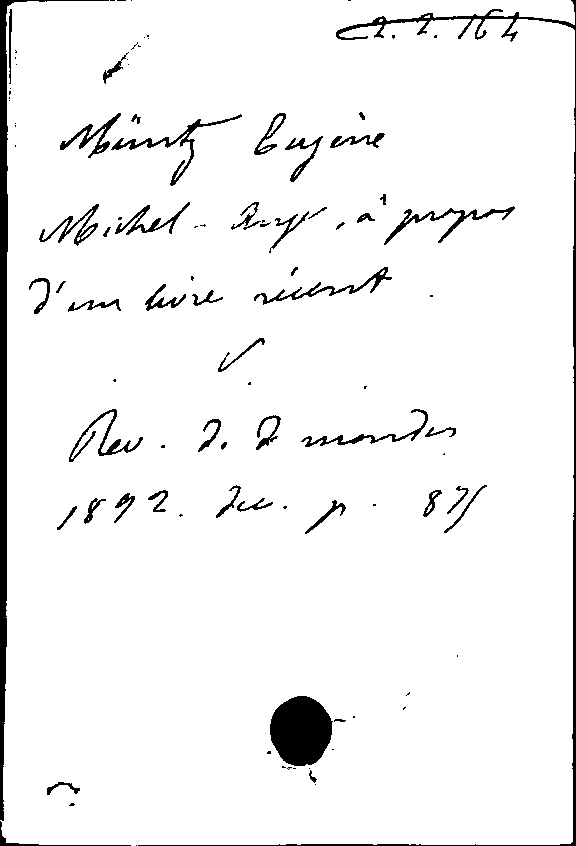 2. 2. 164
Müntz Eugène
Michel-Ange, à propos
d'un livre récent.
Rev. d. d mondes
1892. dec. p. 875